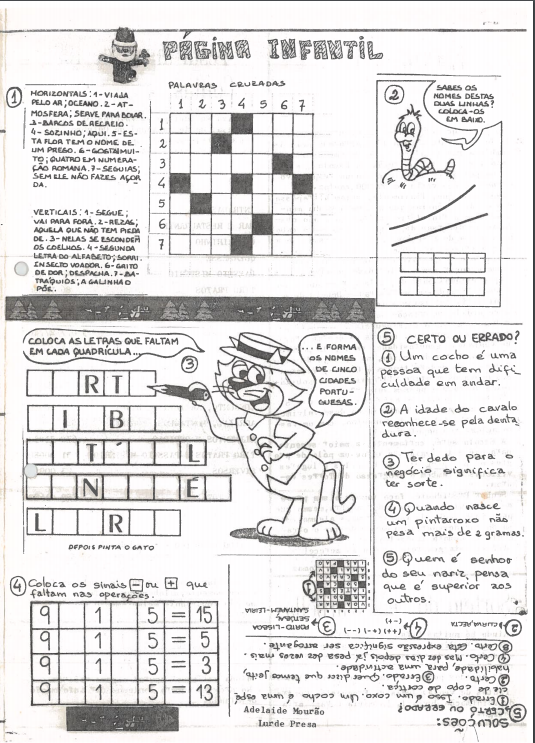 PÁGINA INFANTIL
PALAVRAS CRUZADAS
1
HORIZONTAIS: 1-VIAJA
PELO AR; OCEANO. 2-AT-
MOSFERA; SERVE PARA BOIAR.
3-BARCOS DE RECREIO.
4-SOZINHO; AQUI. 5-ES-
TA FLOR TEM O NOME DE
UM PREGO. 6-GOSTA MUI-
TO; QUATRO EM NUMERA-
ÇÃO ROMANA. 7-SEGUIAS;
SEM ELE NÃO FAZES AÇOR
DA.
VERTICAIS: 1-SEGUE;
VAI PARA FORA. 2-REZAS;
AQUELA QUE NÃO TEM PIEDA
DE. 3-NELAS SE ESCONDEM
OS COELHOS. 4-SEGUNDA
LETRA DO ALFABETO; SORRI.
INSECTO VOADOR. 6-GRITO
DE DOR; DESPACHA. 7-BA-
TRÁQUIOS; A GALINHA O
PÕE.
1 2 3 4 5 6 7
1
2
3
4
5
6
7
2
SABES OS
NOMES DESTAS
DUAS LINHAS?
COLOCA-OS
EM BAIXO.
COLOCA AS LETRAS QUE FALTAM
EM CADA QUADRÍCULA...
3
... E FORMA
OS NOMES
DE CINCO
CIDADES
PORTU-
GUESAS.
R T
I B
T ´ L
N É
L R
DEPOIS PINTA O GATO
4 Coloca os sinais - ou + que
faltam nas operações.
9 1 5 = 15
9 1 5 = 5
9 1 5 = 3
9 1 5 = 13
5 CERTO OU ERRADO?
1 Um cocho é uma
pessoa que tem difi
culdade em andar.
2 A idade do cavalo
reconhece-se pela denta
dura.
3 Ter dedo para o
negócio significa
ter sorte.
4 Quando nasce
um pintarroxo não
pesa mais de 2 gramas.
5 Quem é senhor
do seu nariz, pensa
que é superior aos
outros.
SOLUÇÕES:
5 CERTO OU ERRADO?
1 Errado. Isso é um coxo. Um cocho é uma espé
cie de copo de cortiça.
2 Certo. 3 Errado. Quer dizer que temos jeito,
habilidade, para uma actividade.
4 Certo. Mas dez dias depois já pesa dez vezes mais.
5 Certo. Esta expressão significa ser arrogante.
2 CURVA, RECTA
3 PORTO-LISBOA
SETÚBAL
SANTARÉM-LEIRIA
4 (++) (+-) (--)
(-+)
1
Adelaide Mourão
Lurde Presa